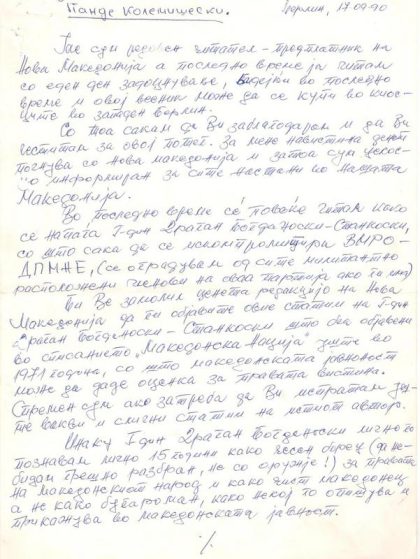 Панде Колемишески.
Берлин, 17.09.90
Јас сум редовен читател - предплатник на
Нова Македонија а последно време ја читам
со еден ден задоцнување, бидејќи во последно
време и овој весник може да се купи во киос-
ците во западен Берлин.
Со тоа сакам да Ви заблагодарам и да Ви
честитам за овој потег. За мене навистина денот
почнува со Нова Македонија и затоа сум
информиран за сите настани во нашата
Македонија.
Во последно време сѐ повеќе читам како
се напаѓа Г-дин Драган Богдановски - Станкоски,
со што сака да се искомпромитира ВМРО-
ДПМНЕ, (се оградувам од сите милитантно
расположени членови на оваа партија ако ги има)
Би Ве замолил ценета редакцијо на Нова
Македонија да ги објавите овие статии на Г-дин
Драган Богданоски - Станкоски што беа објавени
во списанието „Македонска Нација" уште во
1971 година, со што македонската јавност
може да даде оценка за правата вистина.
Спремен сум ако затреба да Ви испратам
вакви и слични статии на истиот автор.
Инаку Г-дин Драган Богданоски лично го
познавам лично 15 години како чесен борец (да не-
бидам грешно разбран, не со оружје!) за правата
на македонскиот народ и како чист македонец
а не како бугароман, како некој го опишува и
прикажува во македонската јавност.
./.